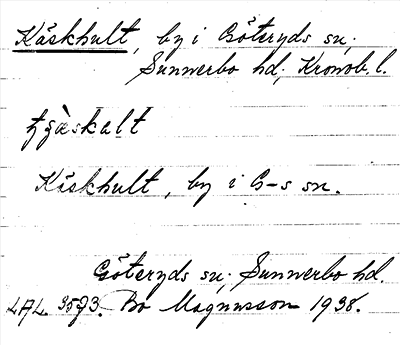 Käskhult, by i Göteryds sn.
Sunnerbo hd, Kronob. l.
tjàskalt
Käskhult, by i G-s sn.
Göteryds sn. Sunnerbo hd.
LAL. 3573. Bo Magnusson 1938.